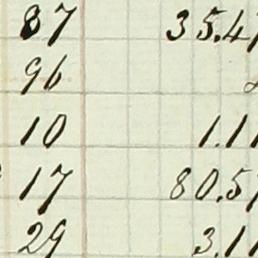 87 35.4
96
10 1.1
17 80.5
29 3.1